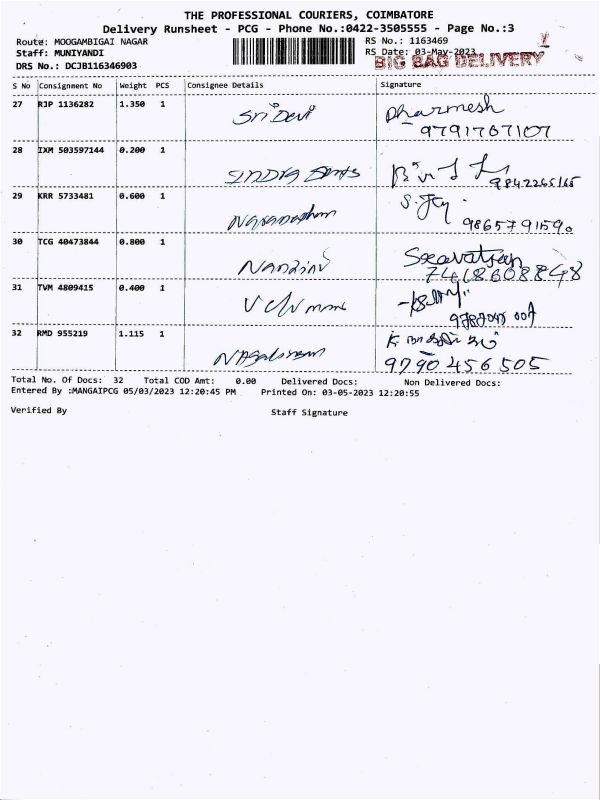 THE PROFESSIONAL COURIERS, COIMBATORE
Delivery Runsheet - PCG - Phone No.:0422-3505555 - Page No.:3
Route: MOOGAMBIGAI NAGAR
Staff: MUNIYANDI
DRS No.: DCJB116346903
RS No.: 1163469
RS Date: 03-May-2023
BIG BAG DELIVERY
S No Consignment No Weight PCS Consignee Details Signature
27 RJP 1136282 1.350 1 Sri Devi Dharmesh
9791767107
28 IXM 503597144 0.200 1
29 KRR 5733481 0.600 1
30 TCG 40473844 0.800 1
7418608848
31 TVM 4809415 0.400 1
32 RMD 955219 1.115 1
9790456505
Total No. Of Docs: 32 Total COD Amt: 0.00 Delivered Docs: Non Delivered Docs:
Entered By :MANGAIPCG 05/03/2023 12:20:45 PM Printed On: 03-05-2023 12:20:55
Verified By Staff Signature